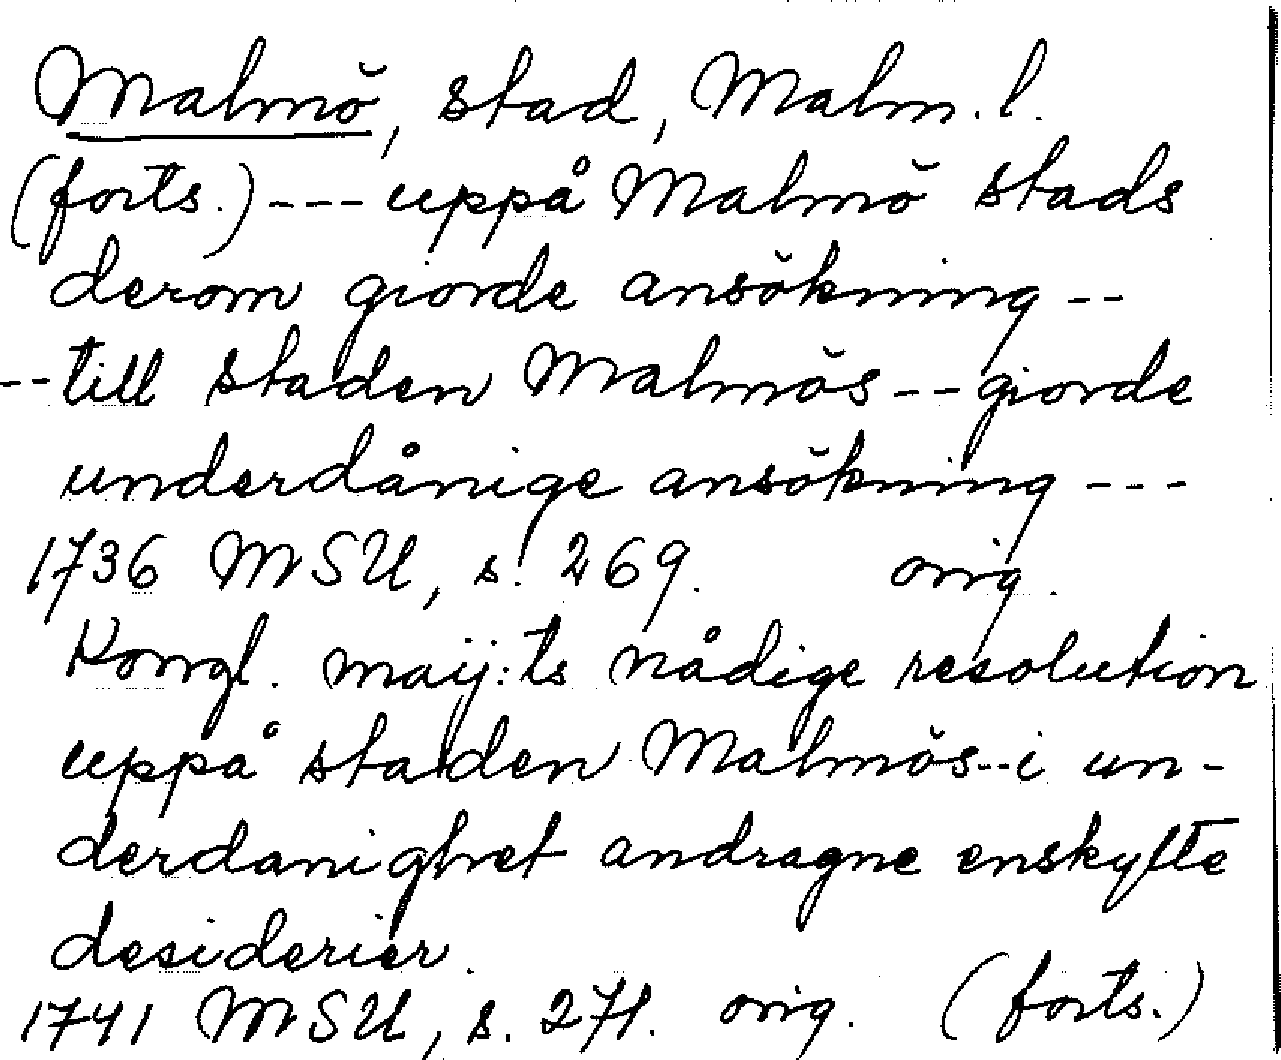 Malmö, stad, Malm. l.
(forts.) --- uppå Malmö stads
derom giorde ansökning --
-- till staden Malmös -- giorde
underdånige ansökning ---
1736 MSU, s. 269. orig.
Kongl. maij:ts nådige resolution
uppå staden Malmös -- i un-
derdanighet andragne enskylte
desiderier.
1741 MSU, s. 271. orig. (forts.)